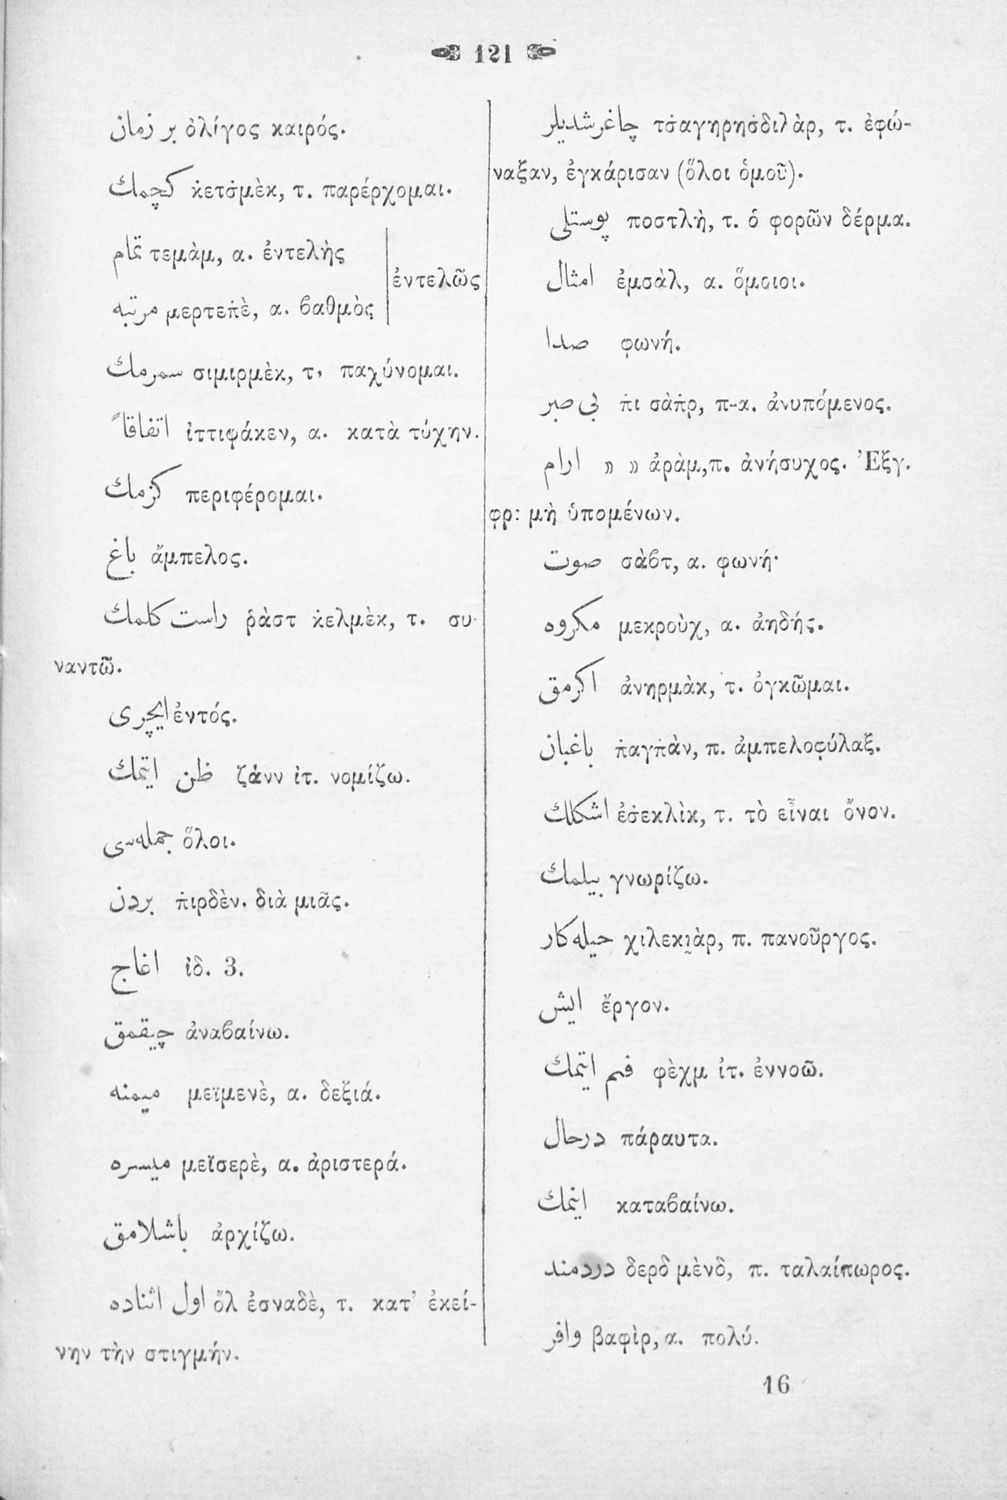 121
بر زمان ὀλίγος καιρός.
كچمك κ̇ετσ̇μὲκ, τ. παρέρχομαι.
تمام τεμὰμ, α. ἐντελὴς
ἐντελῶς
مرتبه μερτεπ̇ὲ, α. βαθμὸς
سمرمك σιμιρμὲκ, τ. παχύνομαι.
اتفاقاً ἰττιφάκεν, α. κατὰ τύχην.
كزمك περιφέρομαι.
باغ ἄμπελος.
راست كلمك ῥὰστ κ̇ελμὲκ, τ. συ-
ναντῶ.
ايچرى ἐντός.
ظن ايتمك ζάνν ἰτ. νομίζω.
جمله‌سى ὅλοι.
بردن π̇ιρδὲν. διὰ μιᾶς.
اغاج ἰδ. 3.
چيقمق ἀναβαίνω.
ميمنه μεϊμενὲ, α. δεξιά.
ميسره μεϊσερὲ, α. ἀριστερά.
باشلامق ἀρχίζω.
اول اثناده ὄλ ἐσναδὲ, τ. κατ’ ἐκεί-
νην τὴν στιγμήν.
چاغرشديلر τσ̇αγηρησ̇διλὰρ, τ. ἐφώ-
ναξαν, ἐγκάρισαν (ὅλοι ὁμοῦ).
پوستلى ποστλὴ, τ. ὁ φορῶν δέρμα.
امثال ἐμσὰλ, α. ὅμοιοι.
صدا φωνή.
بى صبر π̇ι σὰπ̇ρ, π-α. ἀνυπόμενος.
ارام » » ἀρὰμ,π. ἀνήσυχος. Ἐξγ.
φρ: μὴ ὑπομένων.
صوت σὰβτ, α. φωνή·
مكروه μεκροὺχ, α. ἀηδής.
اكرمق ἀνηρμὰκ, τ. ὀγκῶμαι.
باغبان π̇αγπ̇ὰν, π. ἀμπελοφύλαξ.
اشكلك ἐσ̇εκλὶκ, τ. τὸ εἶναι ὄνον.
بيلمك γνωρίζω.
حيله‌كار χιλεκι̯ὰρ, π. πανοῦργος.
ايش ἔργον.
فهم ايتمك φὲχμ ἰτ. ἐννοῶ.
درحال πάραυτα.
اينمك καταβαίνω.
دردمند δερδ μὲνδ, π. ταλαίπωρος.
وافر βαφὶρ, α. πολύ.
16